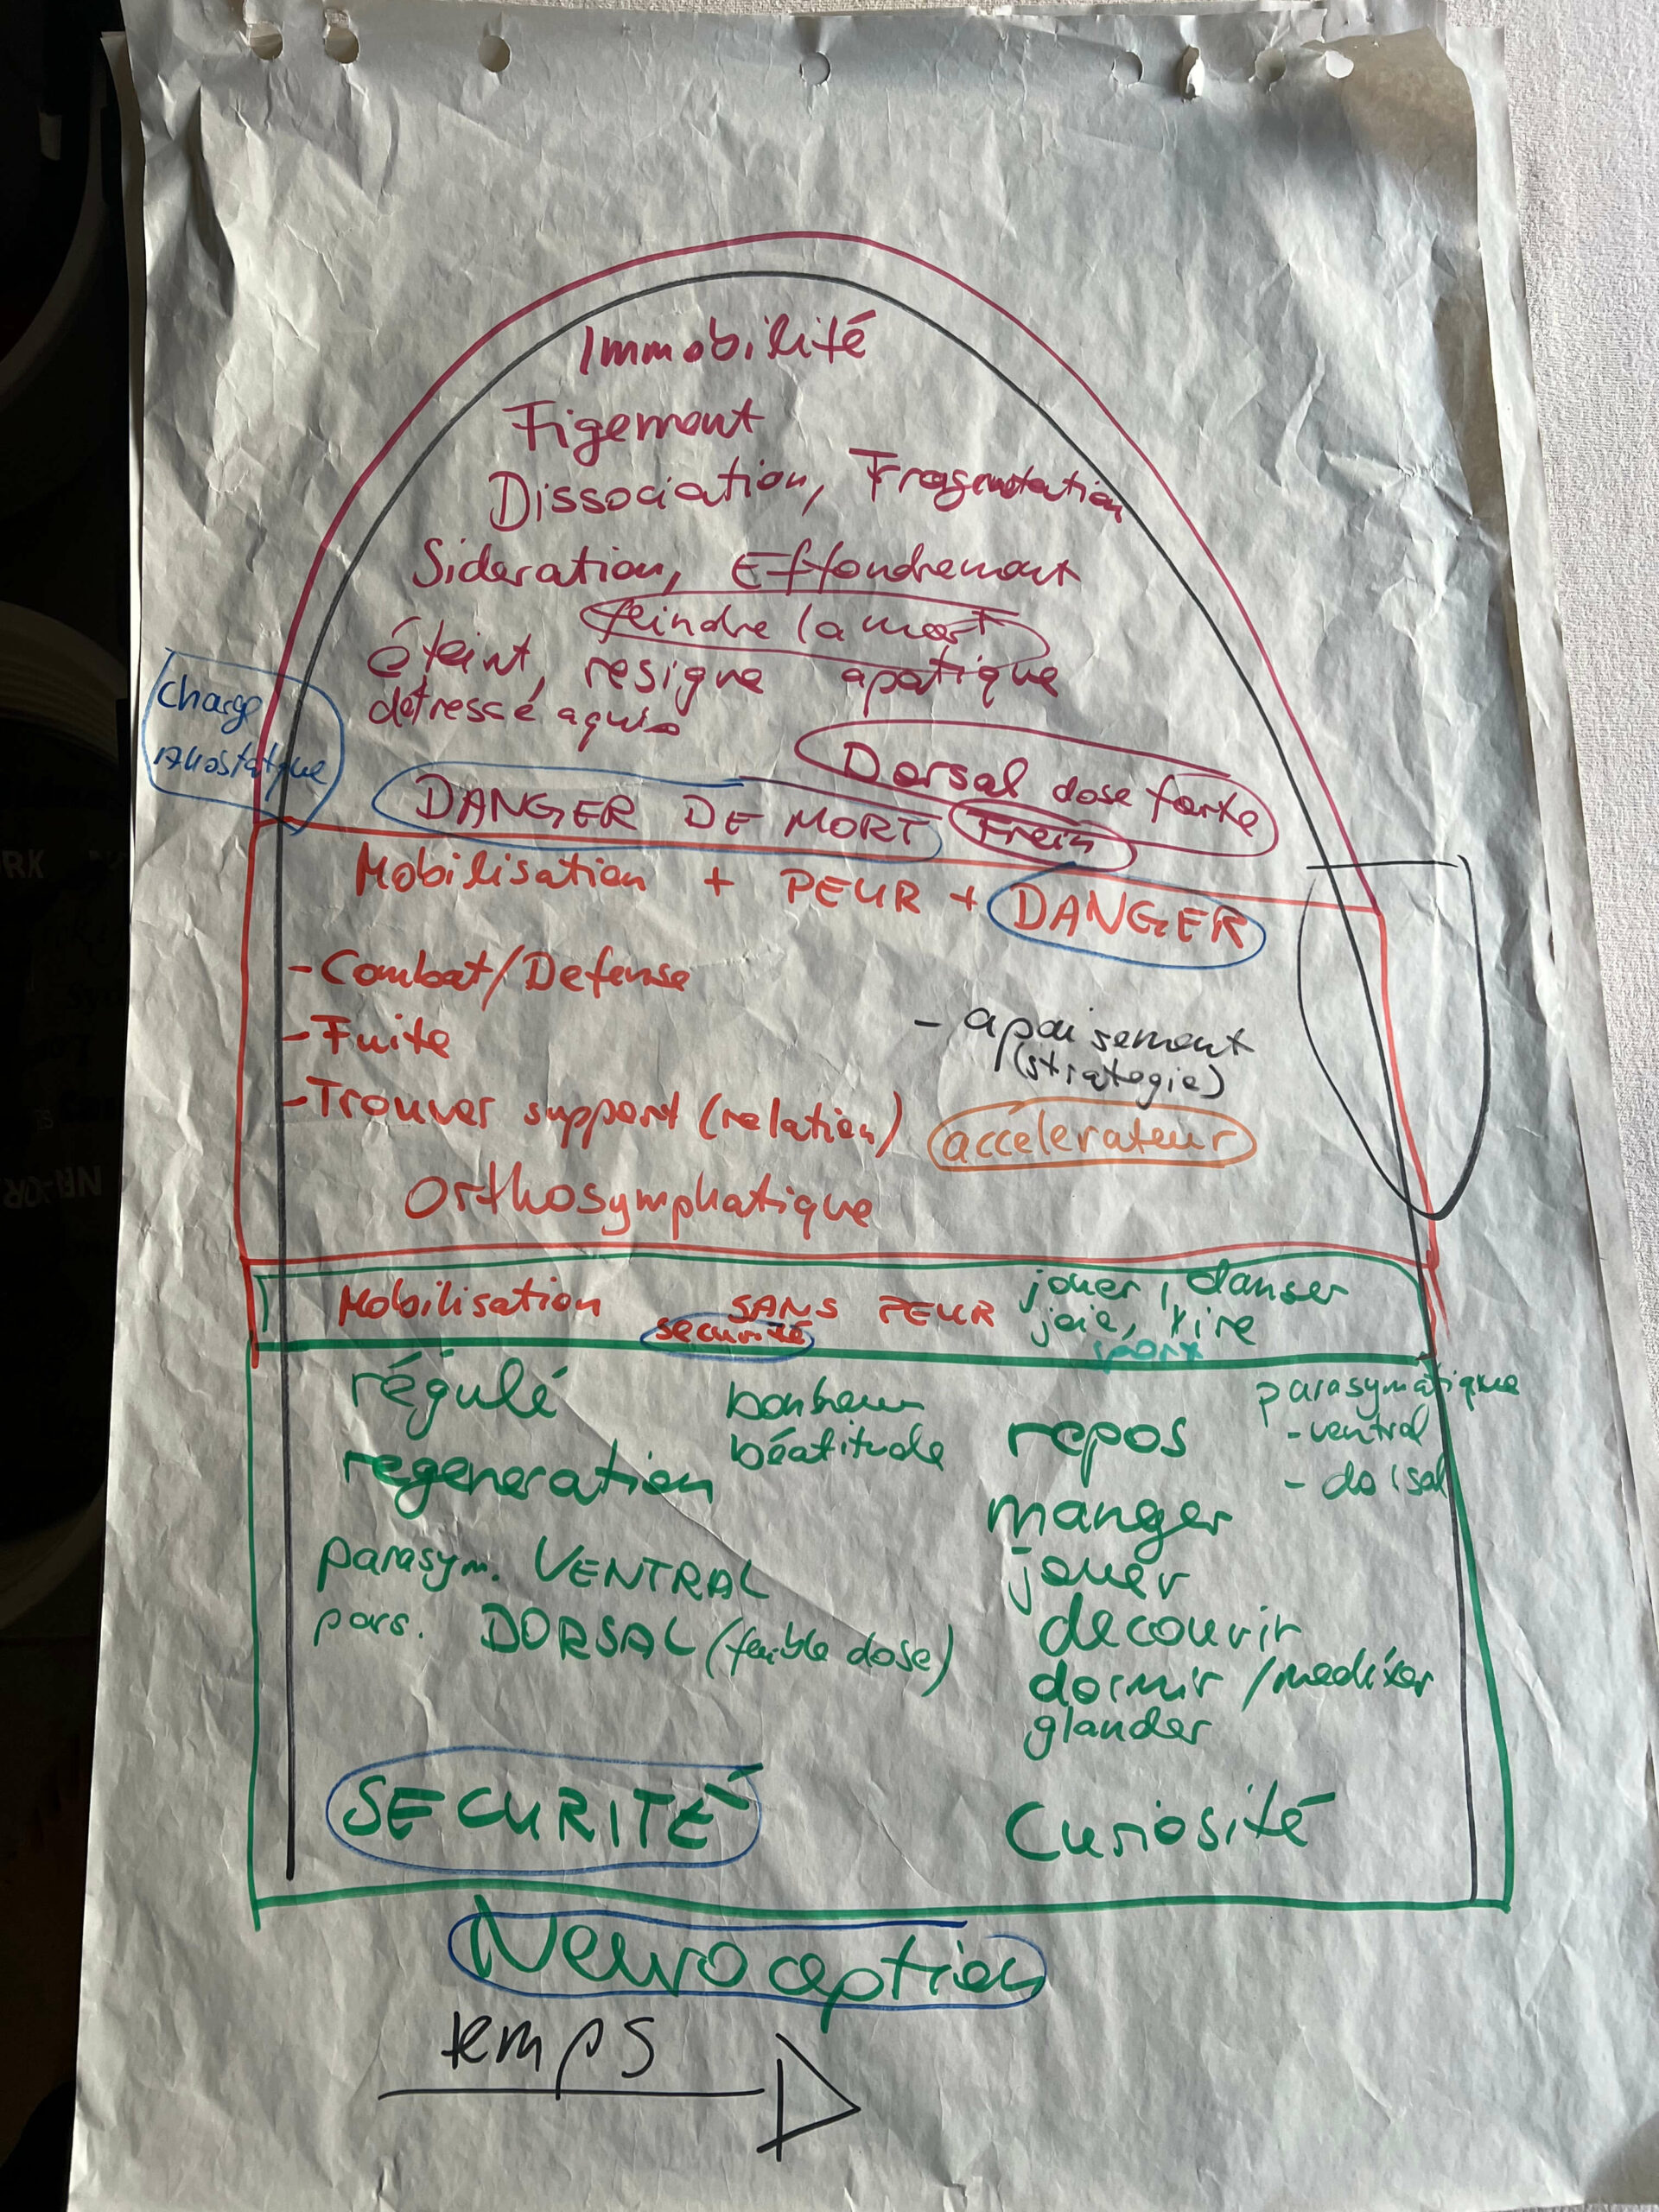 Immobilité
Figement
Dissociation, Fragmentation
Sideration, Effondrement
feindre la mort
éteint, resigne apatique
detresse aquis
charge
Allostatique
Dorsal dose forte
DANGER DE MORT Frein
Mobilisation + PEUR + DANGER
- Combat/Defense
- Fuite
- apaisement
(strategie)
- Trouver support (relation)
accélerateur
Orthosymphatique
Mobilisation SANS PEUR
securité
jouer, danser
joie, rire
sport
régulé
regeneration
bonheur
béatitude
repos
manger
jouer
decouvrir
dormir / mediter
glander
parasymatique
- ventral
- dorsal
parasym. VENTRAL
pars. DORSAL (faible dose)
SECURITÉ
Curiosité
Neuroception
temps